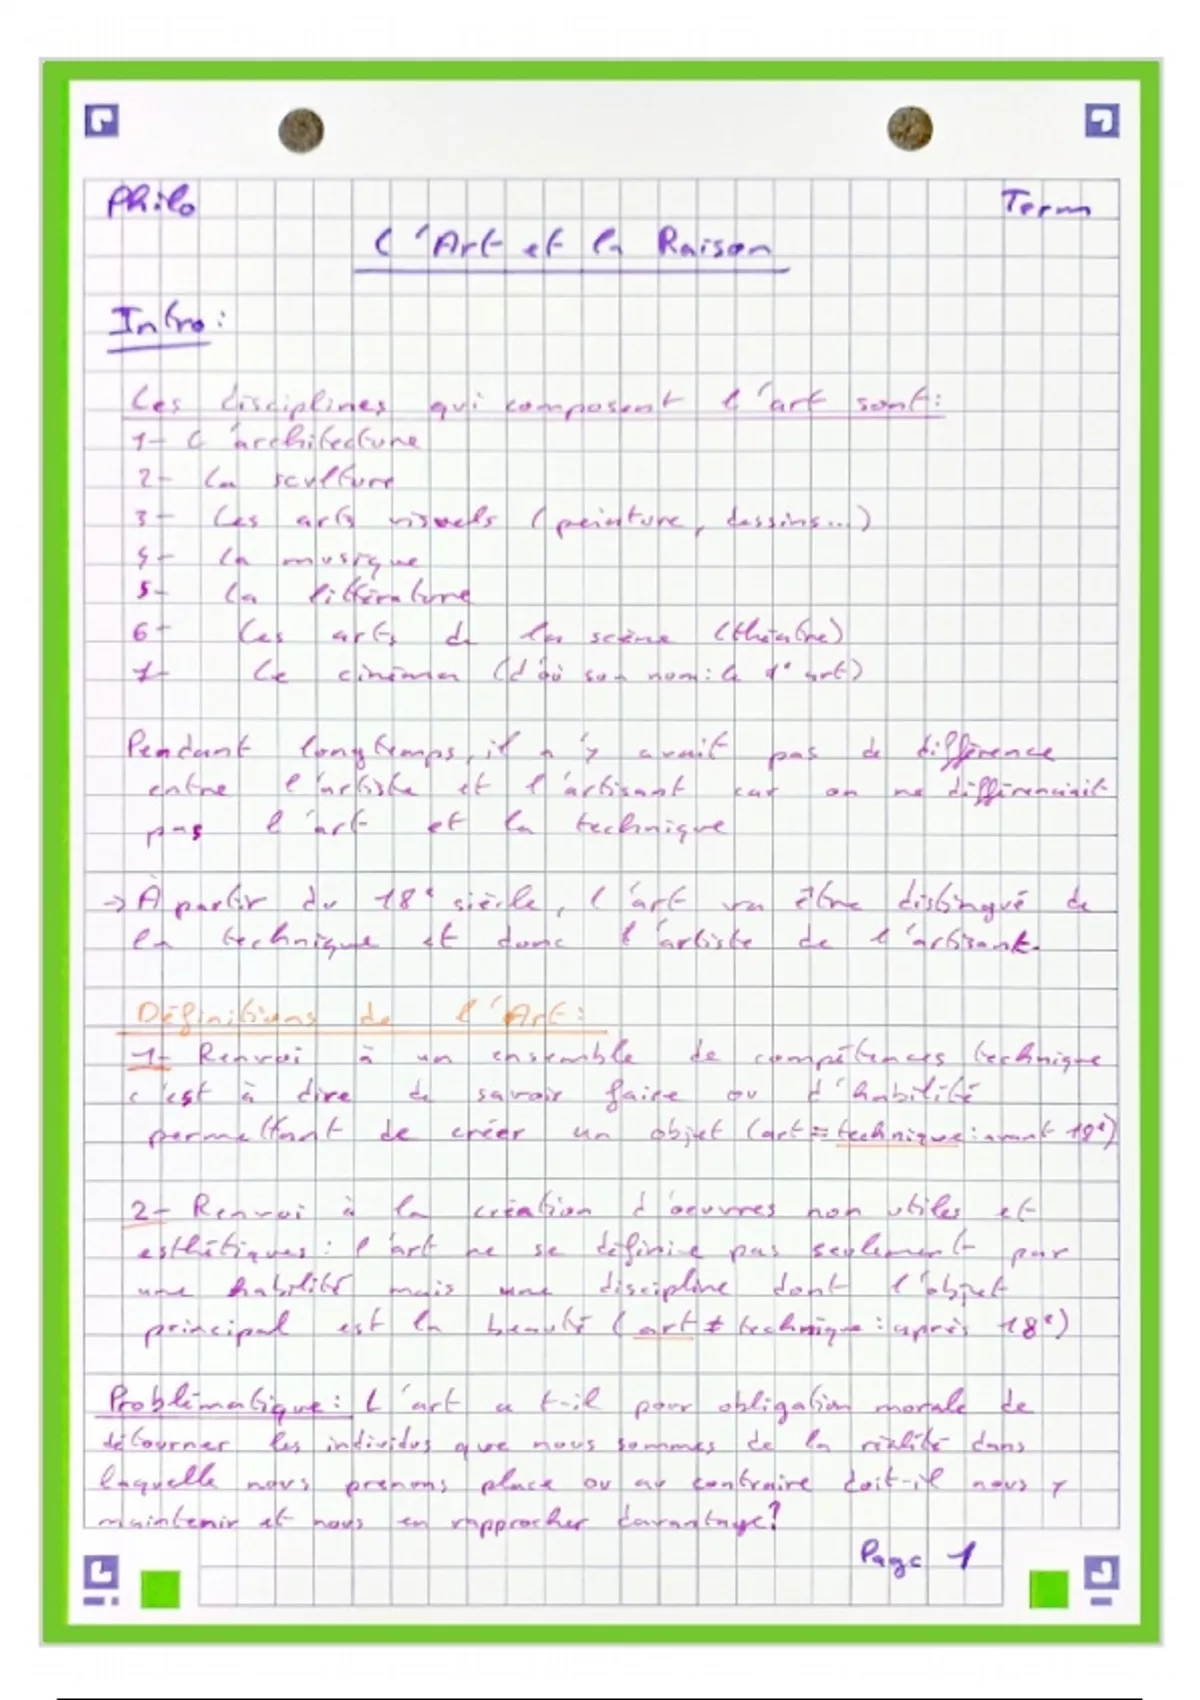 Philo
Term
L'Art et la Raison
Intro:
Les disciplines qui composent l'art sont:
1- L'architecture
2- La sculture
3- Les arts visuels (peinture, dessins...)
4- La musique
5- La littérature
6- Les arts de la scène (théatre)
7- Le cinéma (d'où son nom: le 7e art)
Pendant longtemps, il n'y avait pas de différence
entre l'artiste et l'artisant car on ne différenciait
pas l'art et la technique
→ À partir du 18e siècle, l'art va être distingué de
la technique et donc l'artiste de l'artisant.
Définitions de l'Art:
1- Renvoi à un ensemble de compétences technique
c'est à dire de savoir faire ou d'habilité
permettant de créer un objet (art = technique: avant 18e)
2- Renvoi à la création d'oeuvres non utiles et
esthétiques: l'art ne se définie pas seulement par
une habilité mais une discipline dont l'objet
principal est la beauté (art ≠ technique: après 18e)
Problématique: L'art a t-il pour obligation morale de
détourner les individus que nous sommes de la réalité dans
laquelle nous prenons place ou au contraire doit-il nous y
maintenir et nous en rapprocher davantage?
Page 1